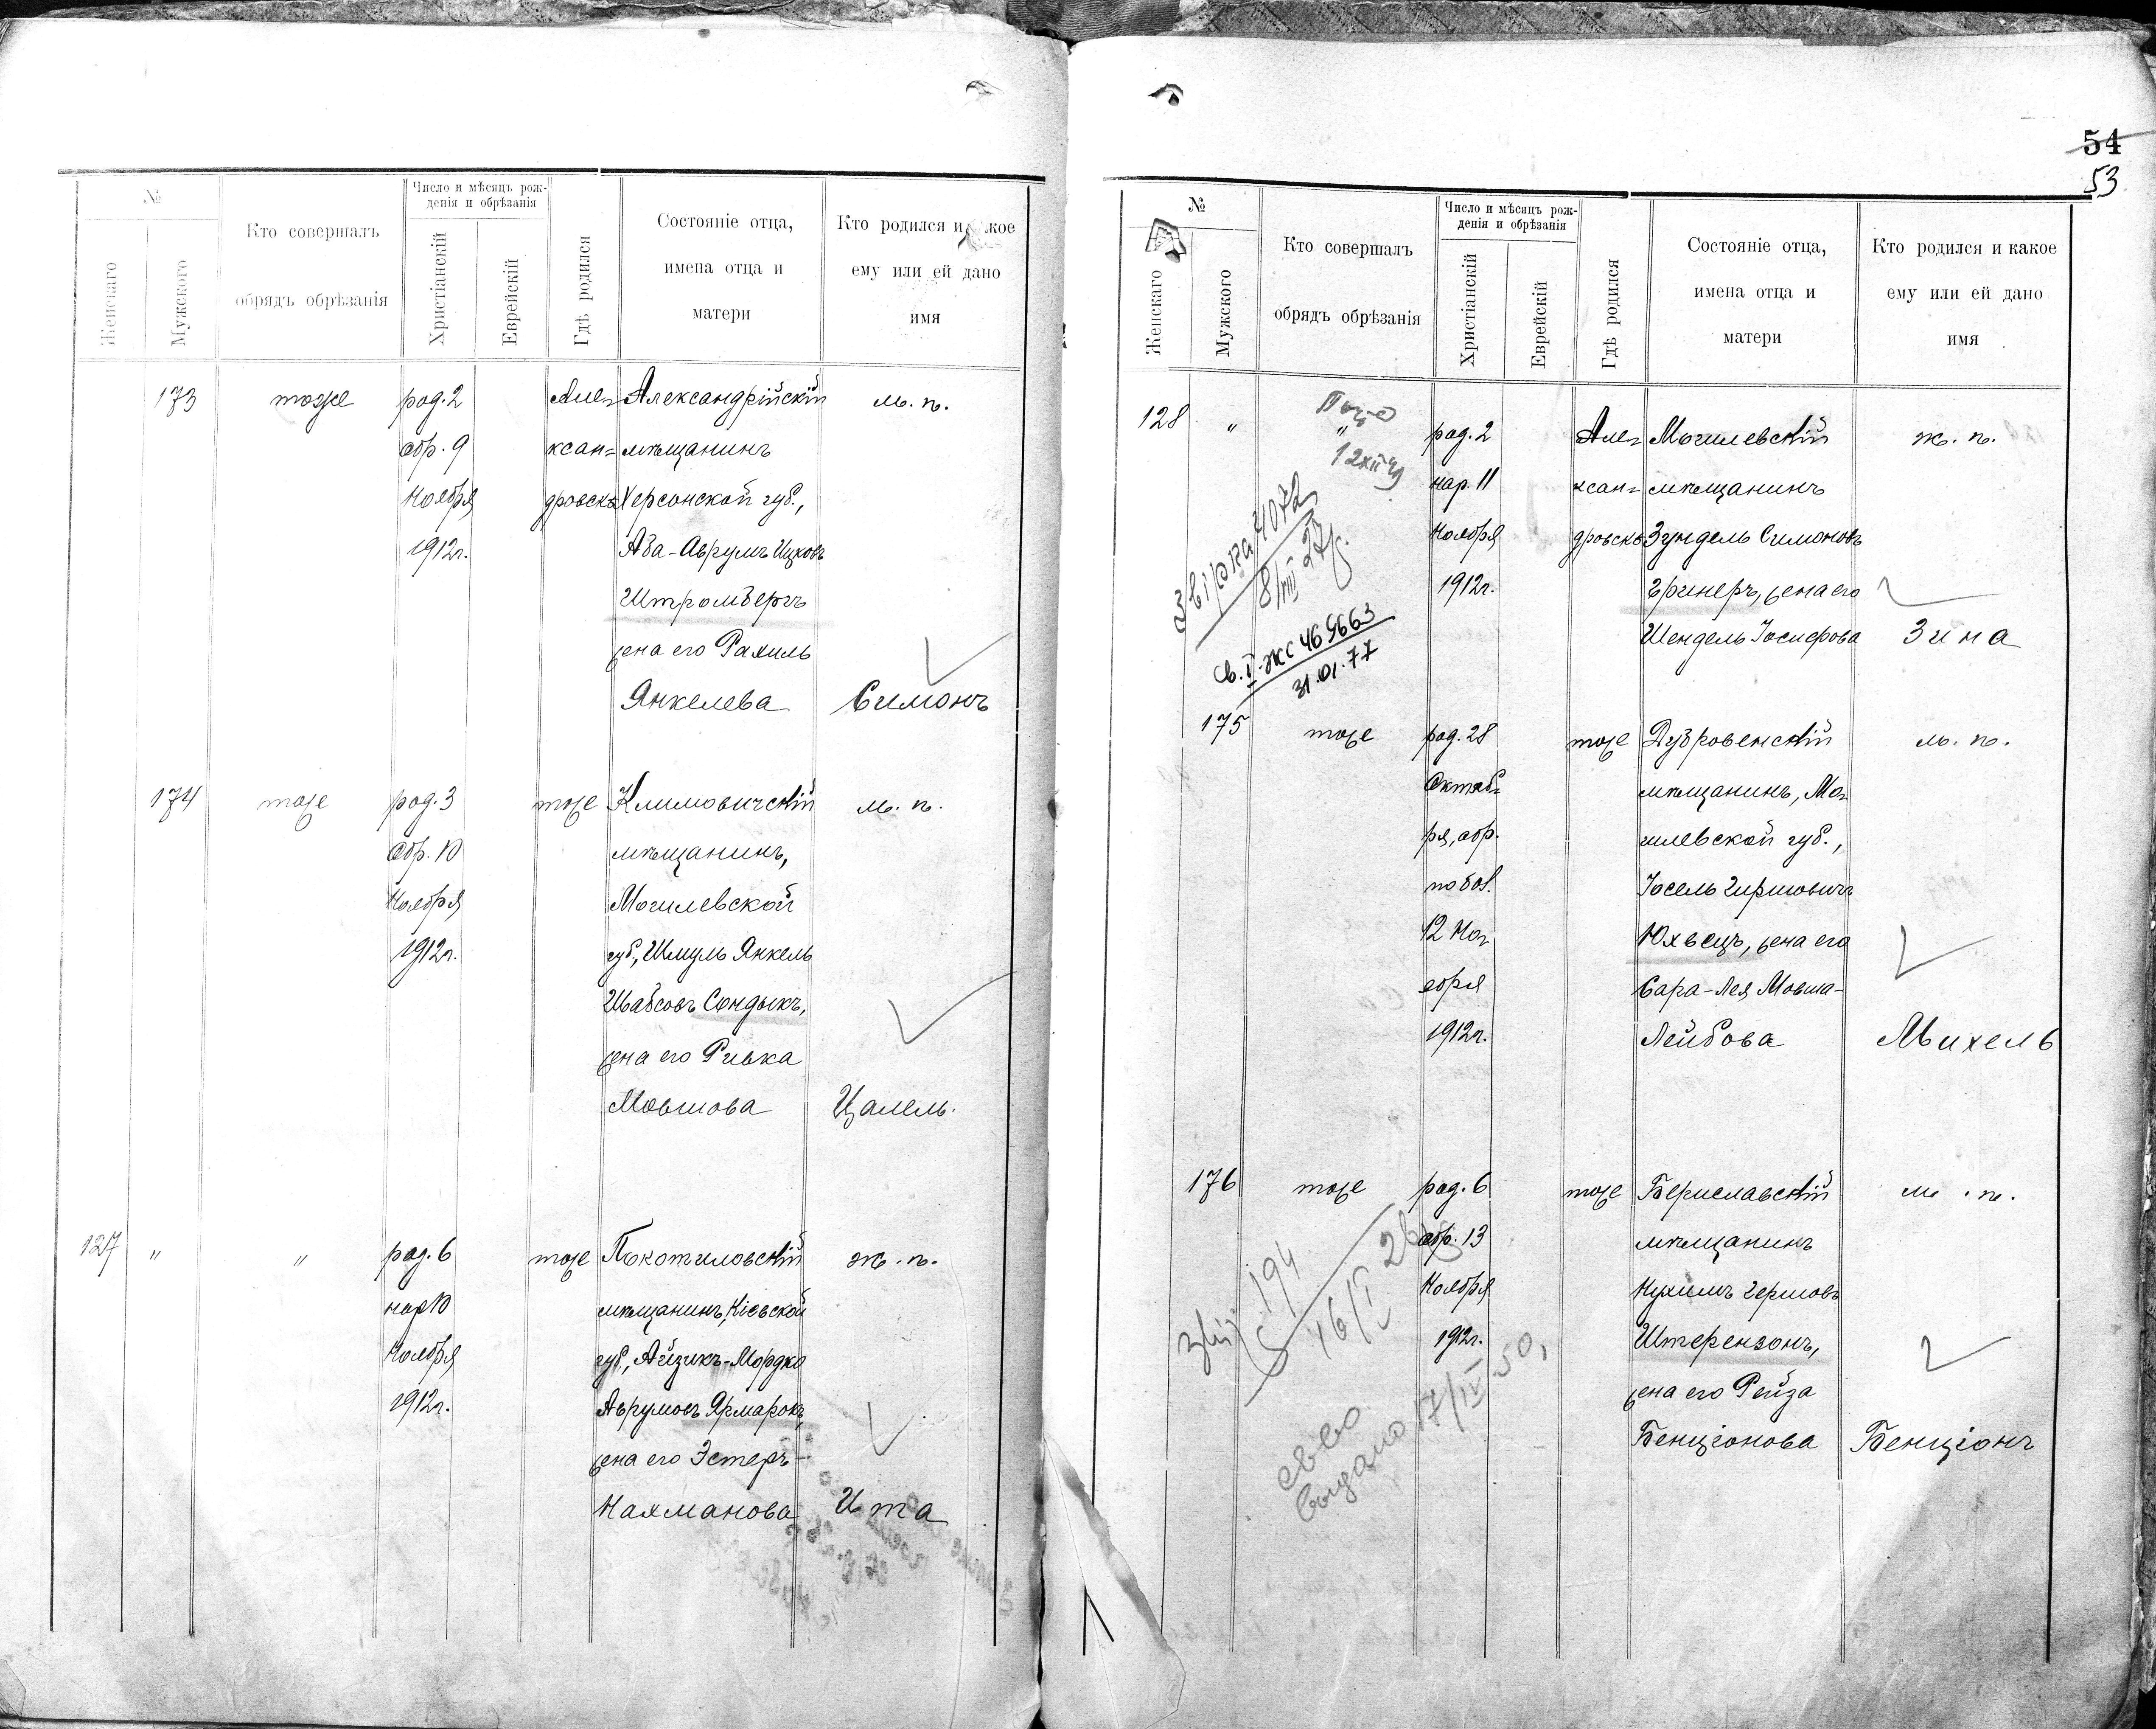 №
Женскаго
Мужского
Кто совершалъ
обрядъ обрѣзанія
Число и мѣсяцъ рож-
денія и обрѣзанія
Христіанскій
Еврейскій
Гдѣ родился
Состояніе отца,
имена отца и
матери
Кто родился и какое
ему или ей дано
имя
173 тоже род. 2 Але= Александрійскій м. п.
обр. 9 ксан= мѣщанинъ
Ноября дровскѣ Херсонской губ.,
1912г. Аба-Аврумъ Ицковъ
Штромбергъ
жена его Рахиль
Янкелева Симонъ
174 тоже род. 3 тоже Климовичскій м. п.
обр. 10 мѣщанинъ,
Ноября Могилевской
1912г. губ., Шмуль Янкель
Шабсовъ Сондыкъ,
жена его Ривка
Мовшова Цалель.
127 " " род. 6 тоже Покотиловскій ж. п.
нар 10 мѣщанинъ, Кіевской
Ноября губ., Айзикъ-Мордко
1912г. Аврумовъ Ярмарокъ,
жена его Эстеръ-
Нахманова Ита
54
53
№
Женскаго
Мужского
Кто совершалъ
обрядъ обрѣзанія
Число и мѣсяцъ рож-
денія и обрѣзанія
Христіанскій
Еврейскій
Гдѣ родился
Состояніе отца,
имена отца и
матери
Кто родился и какое
ему или ей дано
имя
128 " " род. 2 Але= Могилевскій ж. п.
нар. 11 ксан= мѣщанинъ
Ноября дровскѣ Зундель Симоновъ
1912г. Гринеръ, жена его
Шендель Іосифова Зина
Звірка 4072
8/VIII 27р.
св. I-ЖС 469663
31.01.77
175 тоже род. 28 тоже Дубровенскій м. п.
Октяб= мѣщанинъ, Мо=
ря, обр. гилевской губ.,
по бол. Іосель Гиршовичъ
12 Но= Юхвецъ, жена его
ября Сара-Лея Мовша-
1912г. Лейбова Михель
176 тоже род. 6 тоже Бериславскій м. п.
обр. 13 мѣщанинъ
Ноября Нухимъ Гершовъ
1912г. Штерензонъ,
жена его Рейза
Бенціонова Бенціонъ
194
св-во
выдано 17/IV 50,